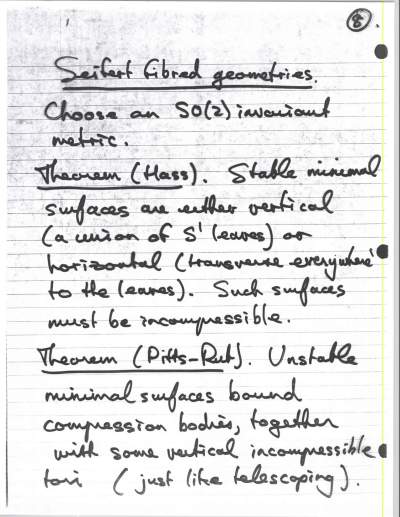 8.
Seifert fibred geometries.
Choose an SO(2) invariant
metric.
Theorem (Hass). Stable minimal
surfaces are either vertical
(a union of S¹ leaves) or
horizontal (transverse everywhere
to the leaves). Such surfaces
must be incompressible.
Theorem (Pitts-Rub). Unstable
minimal surfaces bound
compression bodies, together
with some vertical incompressible
tori (just like telescoping).